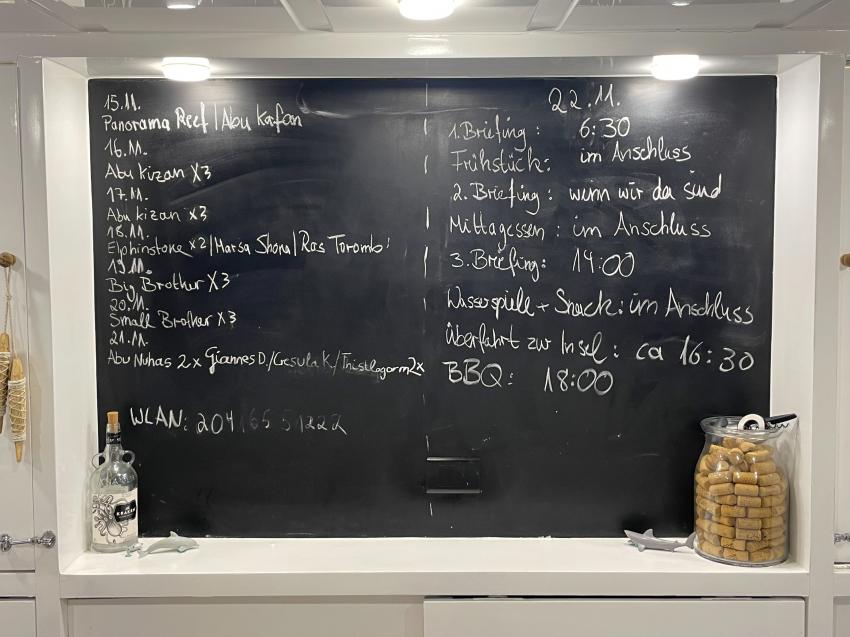 15.11.
Panorama Reef | Abu Kafan
16.11.
Abu Kizan X3
17.11.
Abu Kizan X3
18.11.
Elphinstone x2 | Marsa Shona | Ras Torombi
19.11.
Big Brother X3
20.11.
Small Brother X3
21.11.
Abu Nuhas 2x Giannes D./Gesula K/Thistlegorm 2x
WLAN: 204
KRAKEN
22.11.
1. Briefing: 6:30
Frühstück: im Anschluss
2. Briefing: wenn wir da sind
Mittagessen: im Anschluss
3. Briefing: 14:00
Wasserspiele + Snack: im Anschluss
Überfahrt zur Insel: ca 16:30
BBQ: 18:00